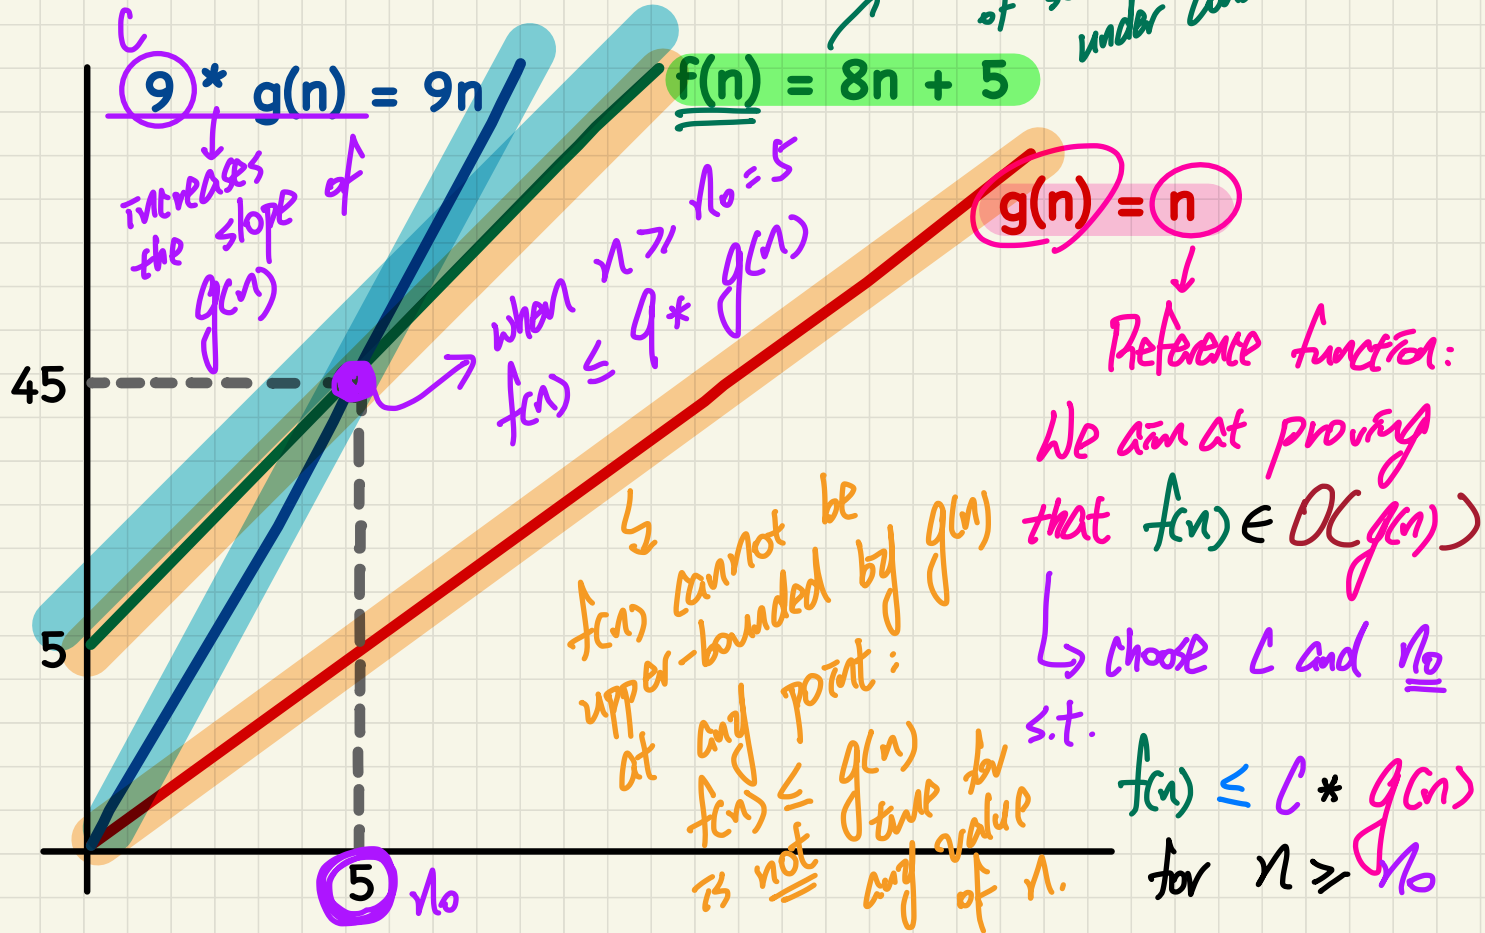 C
of
under
9 * g(n) = 9n
f(n) = 8n + 5
increases
the slope of
g(n)
n₀ = 5
when n ≥
f(n) ≤ 9 * g(n)
g(n) = n
Reference function:
We aim at proving
that f(n) ∈ O(g(n))
choose C and n₀
s.t.
f(n) ≤ C * g(n)
for n ≥ n₀
45
f(n) cannot be
upper-bounded by g(n)
at any point:
f(n) ≤ g(n)
is not true for
any value
of n.
5
5 n₀